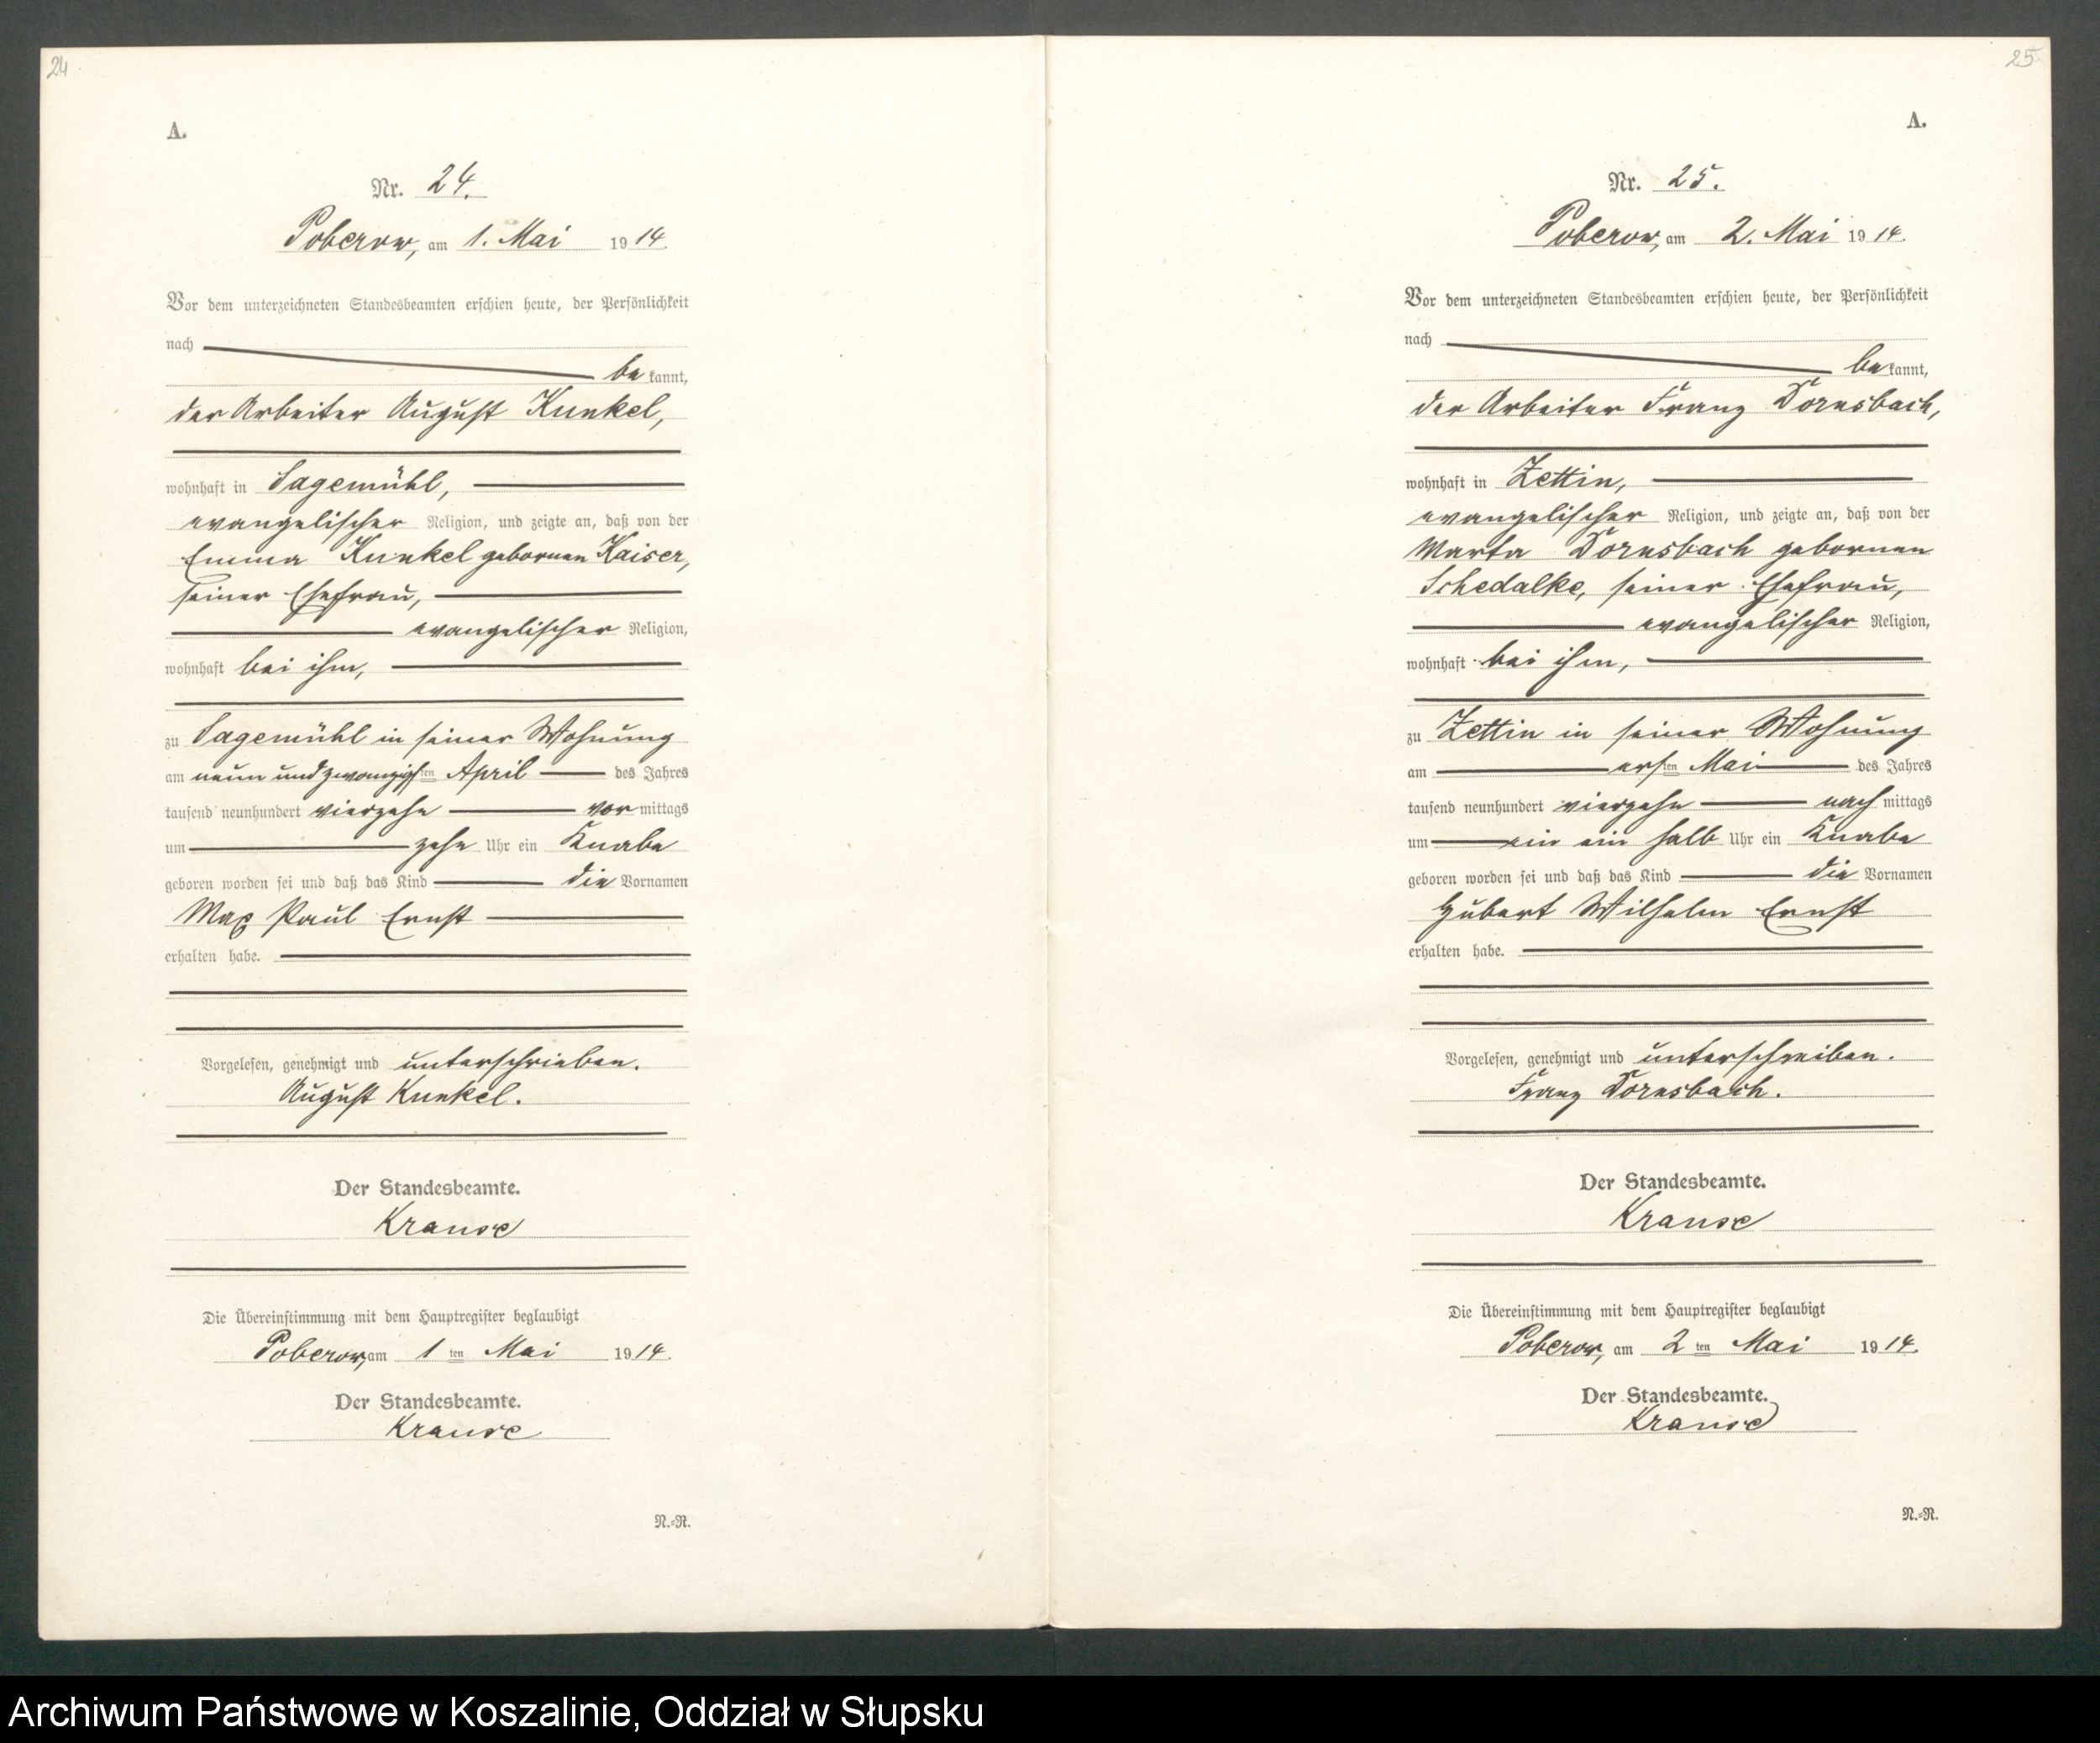 24
A.
Nr. 24.
Poberow, am 1. Mai 1914.
Vor dem unterzeichneten Standesbeamten erschien heute, der Persönlichkeit
nach
bekannt,
der Arbeiter August Kunkel,
wohnhaft in Sagemühl,
evangelischer Religion, und zeigte an, daß von der
Emma Kunkel gebornen Kaiser,
seiner Ehefrau,
evangelischer Religion,
wohnhaft bei ihm,
zu Sagemühl in seiner Wohnung
am neun und zwanzigsten April des Jahres
tausend neunhundert vierzehn vormittags
um zehn Uhr ein Knabe
geboren worden sei und daß das Kind die Vornamen
Max Paul Ernst
erhalten habe.
Vorgelesen, genehmigt und unterschrieben.
August Kunkel.
Der Standesbeamte.
Krause
Die Übereinstimmung mit dem Hauptregister beglaubigt
Poberow, am 1ten Mai 1914.
Der Standesbeamte.
Krause
N.-R.
25
A.
Nr. 25.
Poberow, am 2. Mai 1914.
Vor dem unterzeichneten Standesbeamten erschien heute, der Persönlichkeit
nach
bekannt,
der Arbeiter Franz Dornsbach,
wohnhaft in Zettin,
evangelischer Religion, und zeigte an, daß von der
Marta Dornsbach gebornen
Schedalke, seiner Ehefrau,
evangelischer Religion,
wohnhaft bei ihm,
zu Zettin in seiner Wohnung
am ersten Mai des Jahres
tausend neunhundert vierzehn nachmittags
um ein ein halb Uhr ein Knabe
geboren worden sei und daß das Kind die Vornamen
Hubert Wilhelm Ernst
erhalten habe.
Vorgelesen, genehmigt und unterschreiben.
Franz Dornsbach.
Der Standesbeamte.
Krause
Die Übereinstimmung mit dem Hauptregister beglaubigt
Poberow, am 2ten Mai 1914.
Der Standesbeamte.
Krause
N.-R.
Archiwum Państwowe w Koszalinie, Oddział w Słupsku